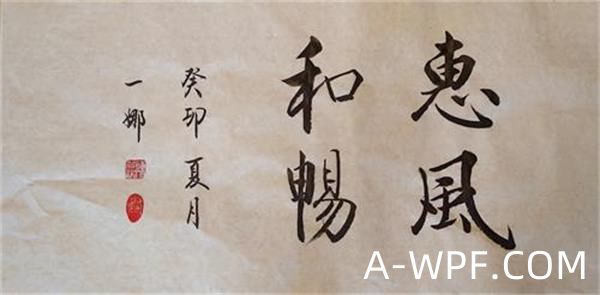 惠風
和暢
癸卯夏月
一娜
A-WPF.COM